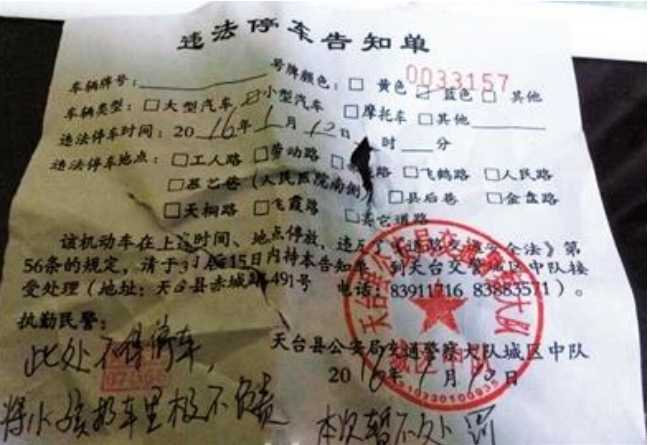 违法停车告知单
0033157
车辆牌号: 号牌颜色: □ 黄色 ☑ 蓝色 □ 其他
车辆类型: □大型汽车 ☑小型汽车 □摩托车 □其他
违法停车时间: 2016年1月12日 时 分
违法停车地点: □工人路 □劳动路 路 □飞鹤路 □人民路
□慕艺巷(人民医院南侧) □县后巷 □金盘路
□天桐路 □飞霞路 □其它道路
该机动车在上述时间、地点停放,违反了《道路交通安全法》第
56条的规定,请于3日后15日内持本告知单,到天台交警城区中队接
受处理(地址:天台县赤城路491号 电话:83911716 83883571)。
执勤民警:
天台县公安局交通警察大队城区中队
2016年1月12日
此处不得停车,
将小孩扔车里极不负责
本次暂不处罚
天台县公安局交通警察大队
城区中队